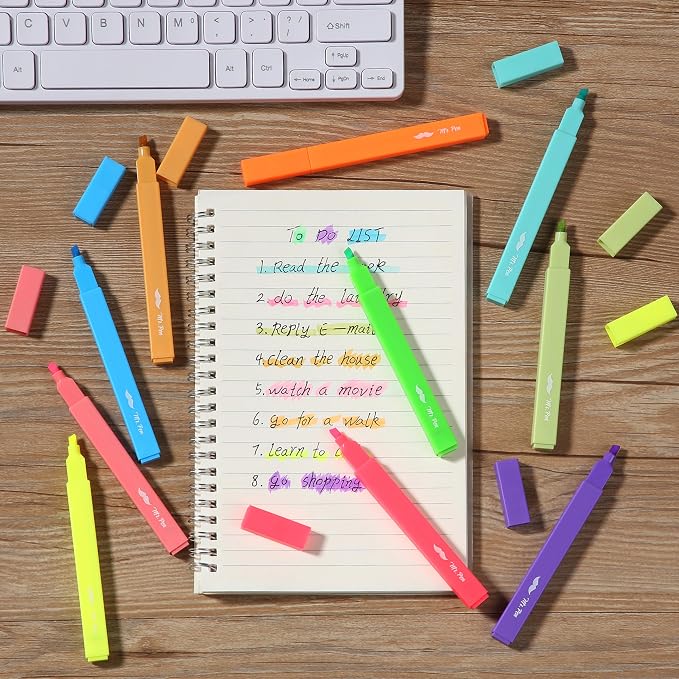 B N M < > ? / Shift
Alt Alt Ctrl Home PgUp PgDn End
Mr. Pen
Mr. Pen
Mr. Pen
Mr. Pen
Mr. Pen
Mr. Pen
Mr. Pen
Mr. Pen
Mr. Pen
Mr. Pen
TO DO LIST
1. Read the
2. do the laundry
3. Reply E-mail
4. clean the house
5. watch a movie
6. go for a walk
7. learn to
8. go shopping